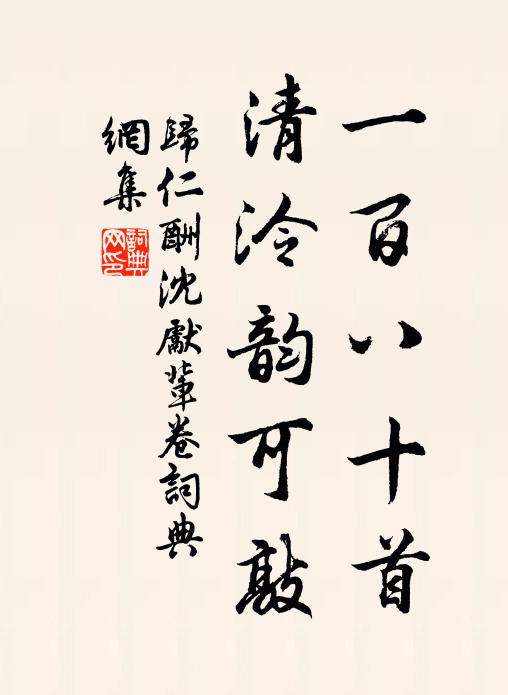 一百八十首
清泠韵可敲
歸仁酬沈獻輩卷詞典
網集
詞典網印